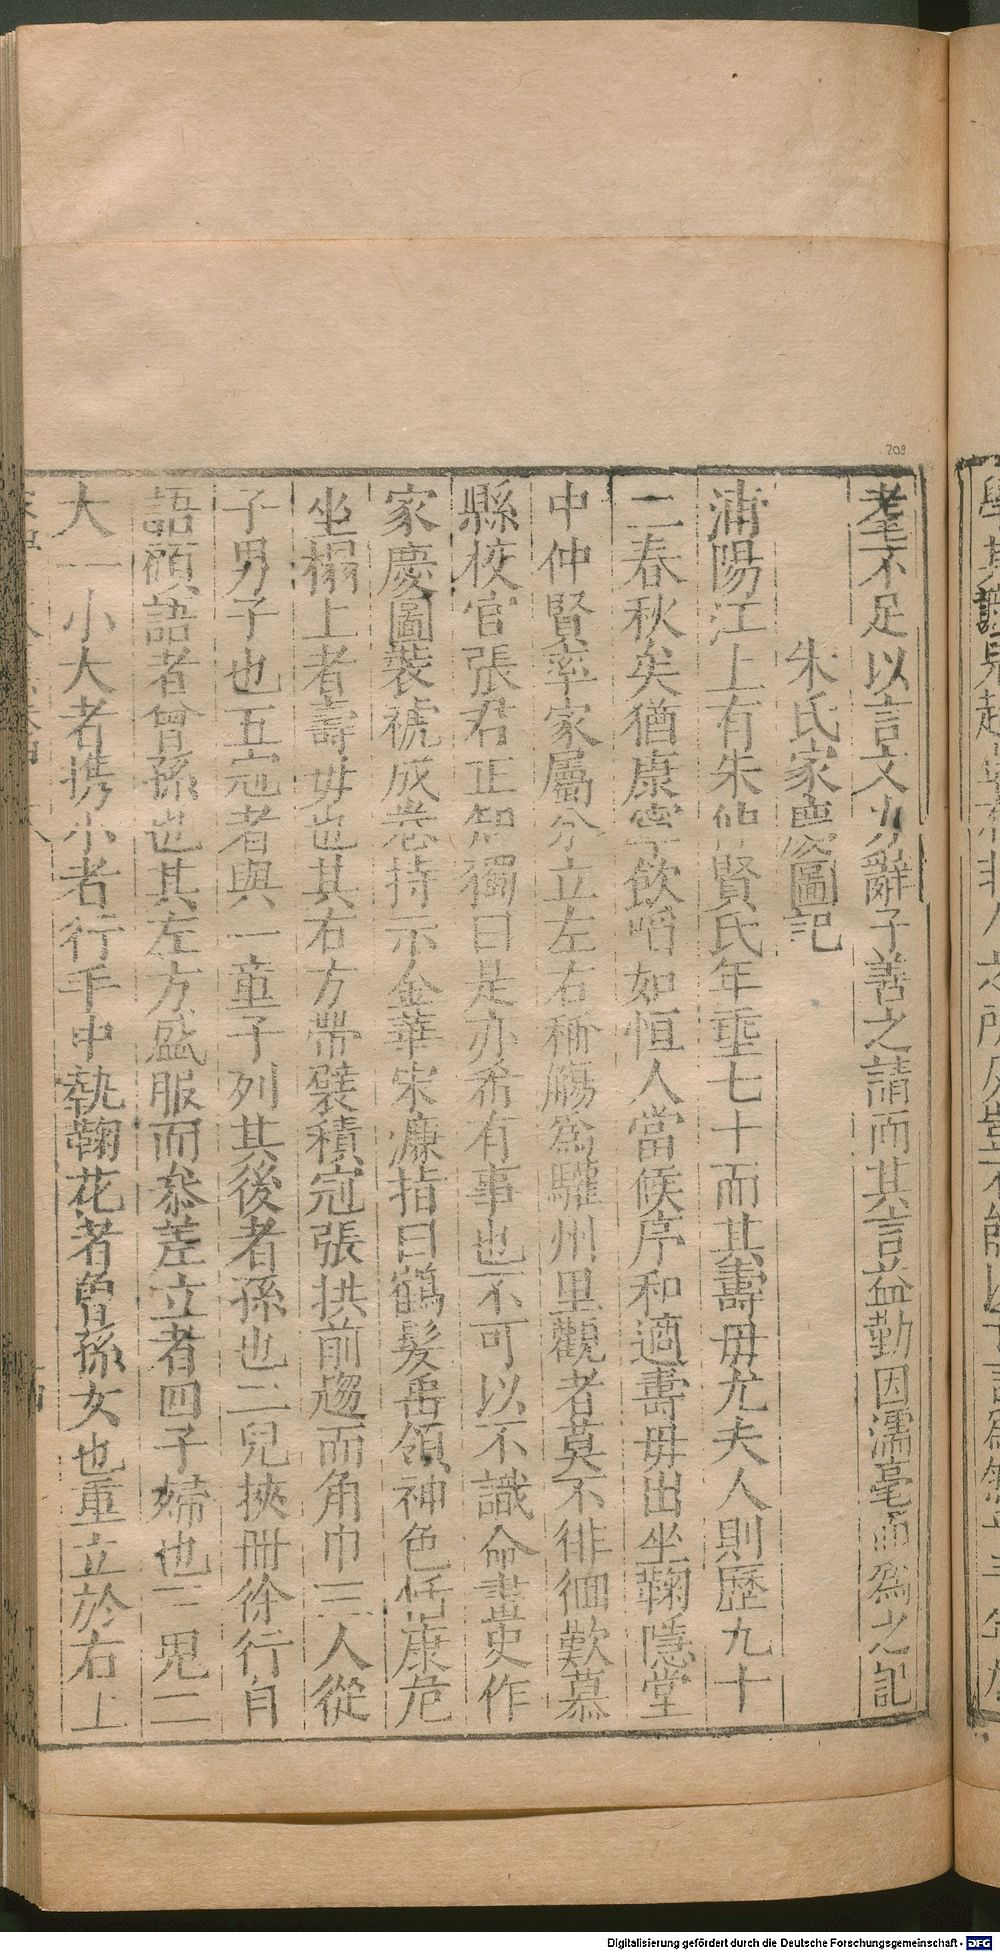 209
耄不足以言文力辭子善之請而其言益勤因濡毫而爲之記
朱氏家慶圖記
浦陽江上有朱仲賢氏年垂七十而其壽毋尤夫人則歷九十
二春秋矣猶康寧飲啗如恒人當候序和適壽毋出坐鞠隱堂
中仲賢率家屬分立左右稱觴爲驩州里觀者莫不徘徊歎慕
縣校官張君正知獨曰是亦希有事也不可以不識命畫史作
家慶圖裝褫成卷持示金華宋濂指曰鶴髮垂領神色恬康危
坐榻上者壽毋也其右方帶襞積冠張拱前趨而角巾三人從
子男子也五冠者與一童子列其後者孫也二兒挾冊徐行自
語顧語者曾孫也其左方盛服而叅差立者四子婦也三兒二
大一小大者携小者行手中執鞠花者曾孫女也重立於右上
Digitalisierung gefördert durch die Deutsche Forschungsgemeinschaft - DFG